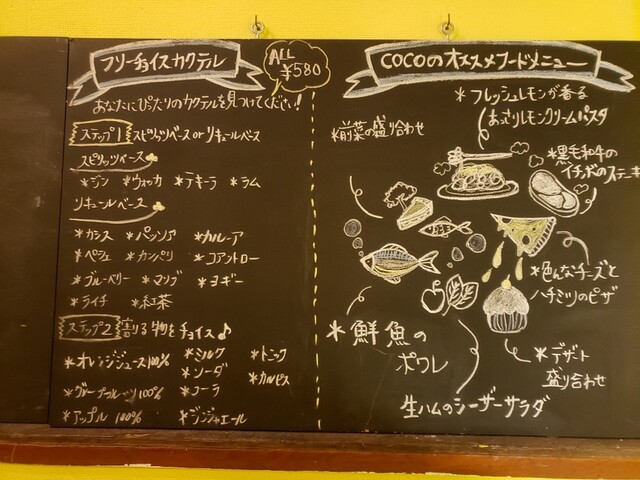 フリーチョイスカクテル
ALL
¥580
あなたにぴったりのカクテルを見つけてください!
ステップ1 スピリッツベース or リキュールベース
スピリッツベース
*ジン *ウォッカ *テキーラ *ラム
リキュールベース
*カシス *パッソア *カルーア
*ペシェ *カンパリ *コアントロー
*ブルーベリー *マリブ *ヨギー
*ライチ *紅茶
ステップ2 割る物をチョイス♪
*オレンジジュース100% *ミルク *トニック
*ソーダ *カルピス
*グレープフルーツ100% *コーラ
*アップル 100% *ジンジャエール
COCOのオススメフードメニュー
*フレッシュレモンが香る
あっさりレモンクリームパスタ
*前菜の盛り合わせ
*黒毛和牛の
イチボのステーキ
*色んなチーズと
ハチミツのピザ
*鮮魚の
ポワレ
*デザート
盛り合わせ
生ハムのシーザーサラダ